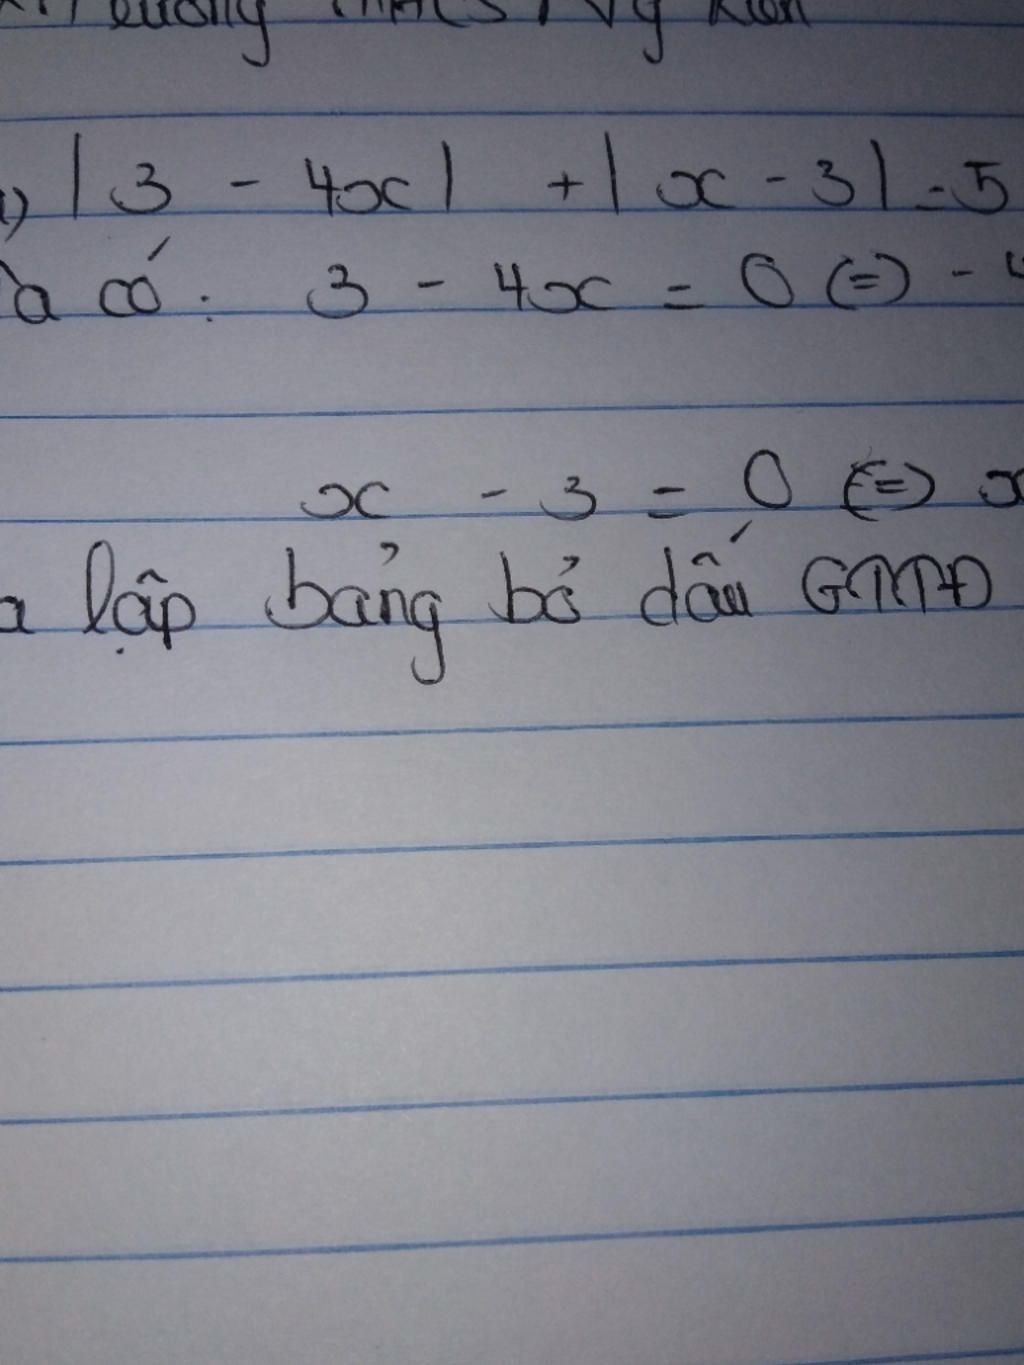 Trường THCS
1) |3 - 4x| + |x - 3| = 5
Ta có: 3 - 4x = 0 (=) -
x - 3 = 0 (=) x
lập bảng bỏ dấu GTTĐ